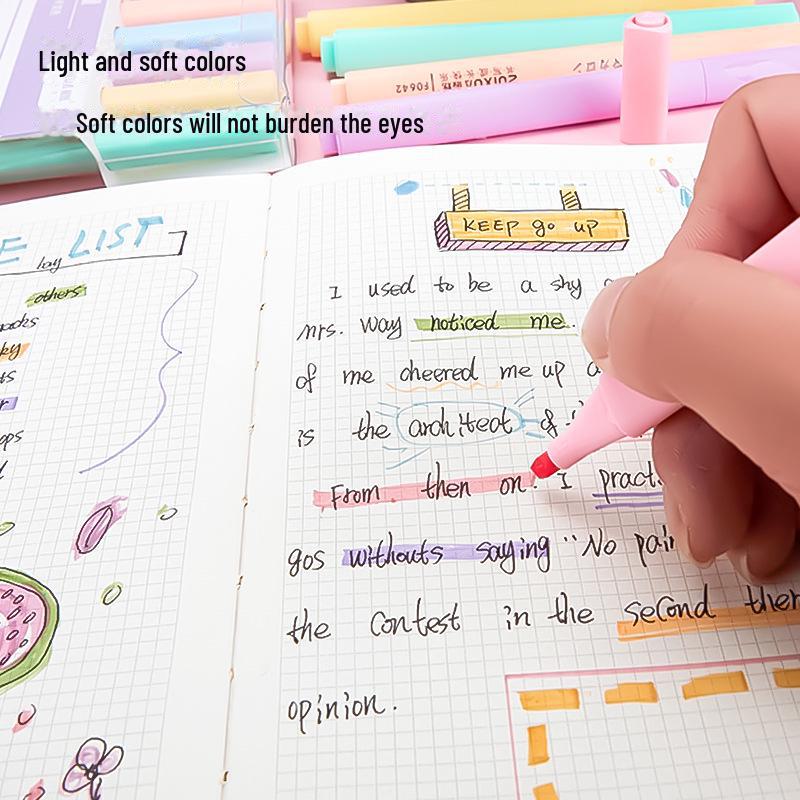 Light and soft colors
Soft colors will not burden the eyes
F0642
E LIST
lay
others
KEEP go up
I used to be a shy
mrs. Way noticed me.
of me cheered me up
is the architect of
From then on. I pract
gos withouts saying "No pain
the Contest in the second then
opinion.